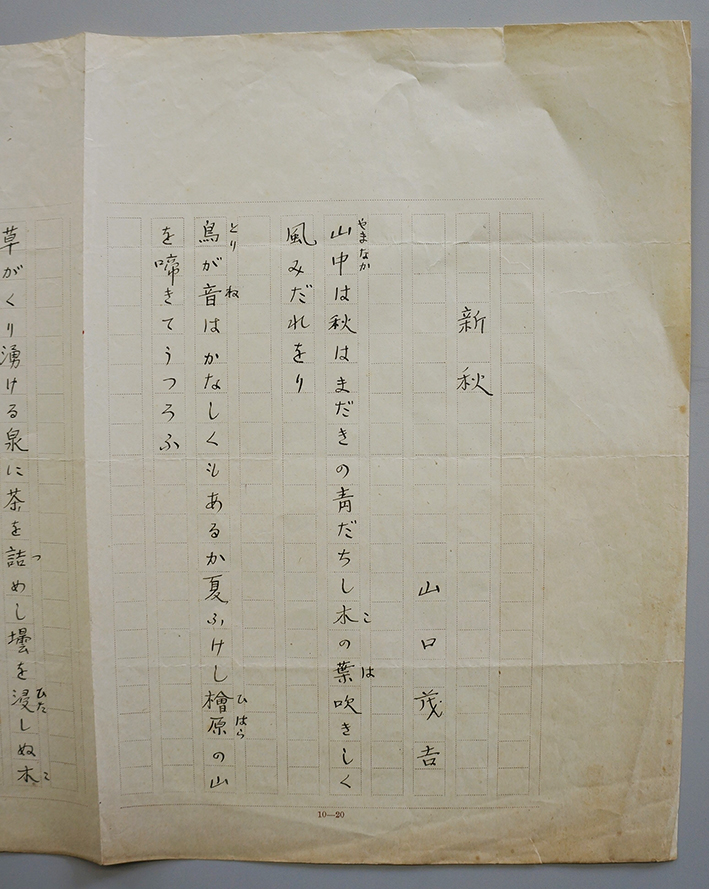 新秋
山口茂吉
やまなか
山中は秋はまだきの青だちし木の葉吹きしく
こ は
風みだれをり
とり ね
鳥が音はかなしくもあるか夏ふけし檜原の山
ひはら
を啼きてうつろふ
草がくり湧ける泉に茶を詰めし壜を浸しぬ木
つ ひた こ
10―20